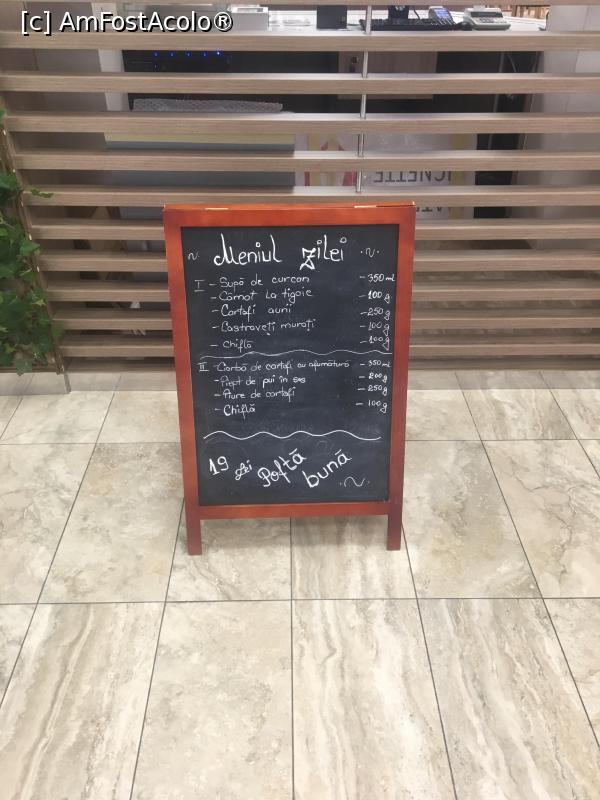 [c] AmFostAcolo®
Meniul zilei
I - Supă de curcan - 350 ml
- Cârnat la tigaie - 100 g
- Cartofi aurii - 250 g
- Castraveți murați - 100 g
- Chiflă - 100 g
II - Ciorbă de cartofi cu afumătură - 350 ml
- Piept de pui în sos - 200 g
- Piure de cartofi - 250 g
- Chiflă - 100 g
19 Lei Poftă bună